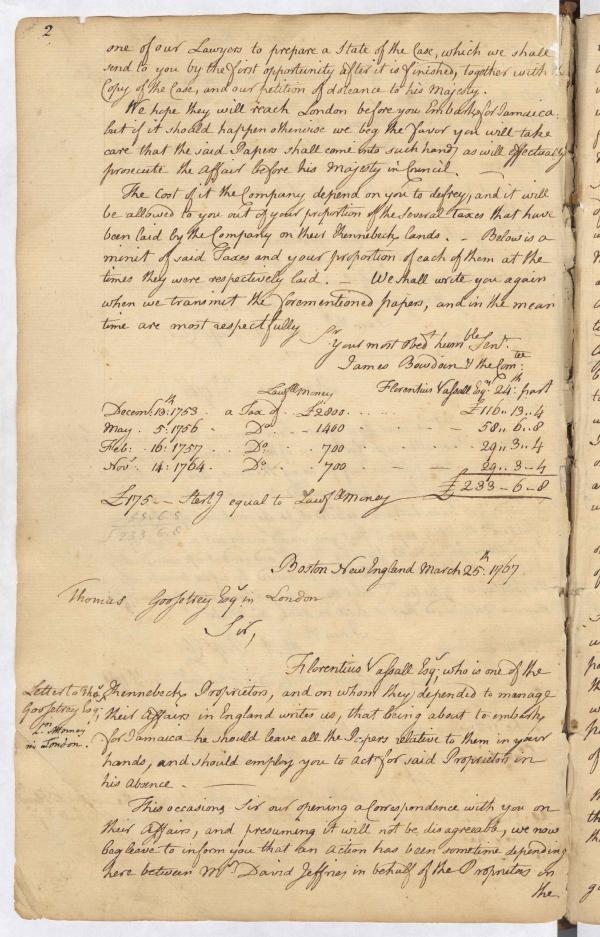 2
one of our Lawyers to prepare a State of the Case, which we shall
send to you by the first opportunity after it is finished, together with
Copy of the Case, and our petition of to his Majesty.
We hope they will reach London before you Embark for Jamaica:
but if it should happen otherwise we beg the favor you will take
care that the said Papers shall come into such hands as will effectually
prosecute the affair before his Majesty in Council. —
The Cost of it the Company depend on you to defrey, and it will
be allowed to you out of your proportion of the several taxes that have
been laid by the Company on their Khennebeck lands. – Below is a
minit of said Taxes and your proportion of each of them at the
times they were respectively laid. — We shall write you again
when we transmit the forementioned papers, and in the mean
time are most respectfully Sr
Your most Obedt humble Servt.
James Bowdoin & the Comtee:
Lawfll Money Florentius Vassall Esqr 24th: part
Decemr: 13th: 1753 . a Tax of . £2800 . . . . £116 .. 13 .. 4
May . 5: 1756 . . Do . . 1400 . . - 58 .. 6 .. 8
Feb: . 16: 1757 . . Do . . 700 . . - 29 .. 3 .. 4
Novr. 14: 1764 . . Do . . 700 . — — 29 .. 3 – 4
£175 – – Sterlg equal to Lawfll Money — £233 – 6 – 8
58.6.8
£233 6.8
Boston New England March 25th: 1767
Thomas Goosetrey Esqr in London
Sir,
Florentius Vassall Esqr, who is one of the
Letter to Thos.
Goosetrey Esq;
in London.
Khennebeck Proprietors, and on whom they depended to manage
their Affairs in England writes us, that being about to embark
for Jamaica he should leave all the Papers relative to them in your
hands, and should employ you to act for said Proprietors in
his absence. —
This occasions Sir our opening a Correspondence with you on
their Affairs, and presuming it will not be disagreeable, we now
beg leave to inform you that an Action has been sometime depending
here between Mr. David Jeffries in behalf of the Proprietors on
the